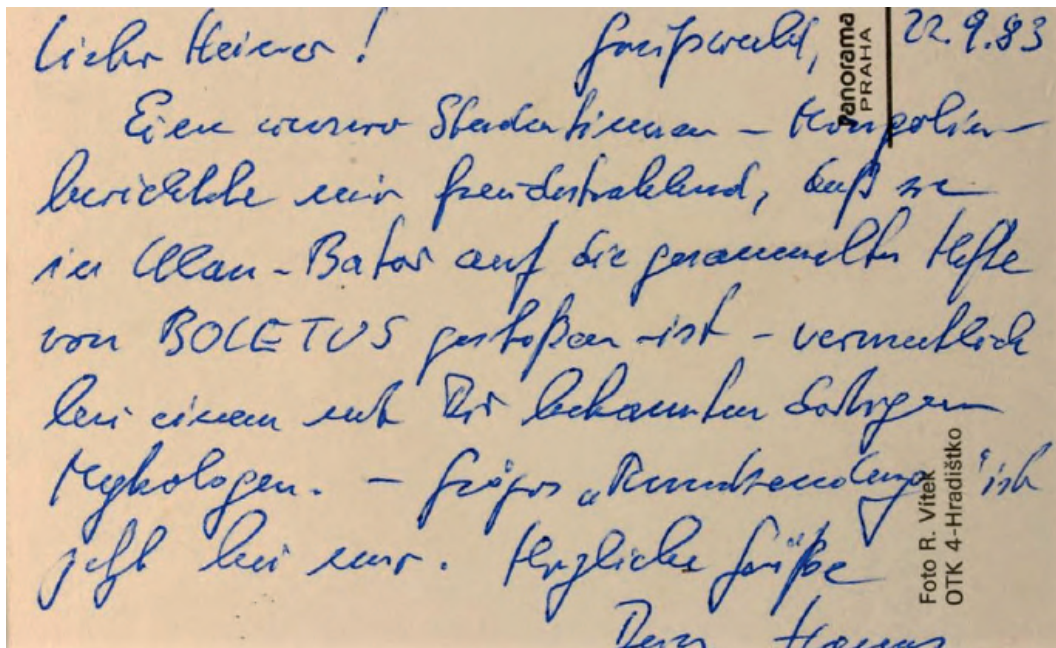 Lieber Heiner! Greifswald, 22.9.83
Eine unserer Studentinnen – Mongolin –
berichtete mir freudestrahlend, daß sie
in Ulan-Bator auf die gesammelten Hefte
von BOLETUS gestoßen ist – vermutlich
bei einem mit Dir bekannten dortigen
Mykologen. – "Rundsendung" ist
jetzt bei mir. Herzliche Grüße
Dein
panorama
PRAHA
Foto R. Vítek
OTK 4-Hradištko